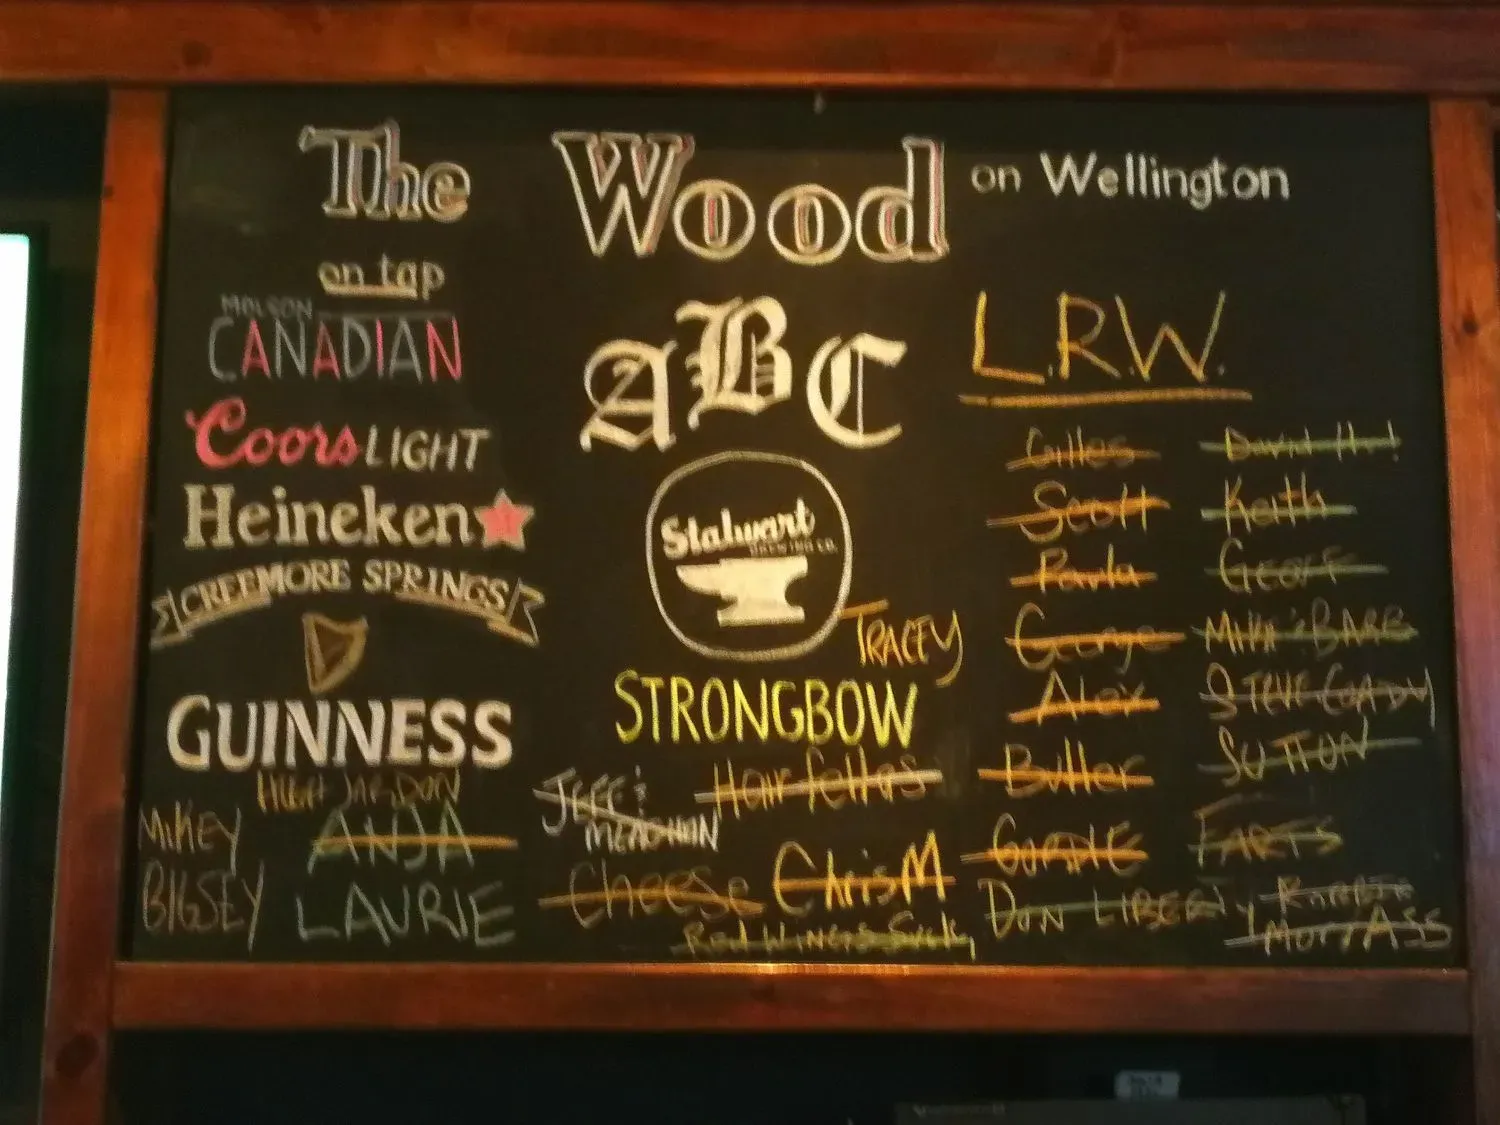 The Wood on Wellington
on tap
MOLSON
CANADIAN
Coors LIGHT
Heineken
CREEMORE SPRINGS
GUINNESS
HUGH JARDON
MIKEY
ANJA
BIGSEY
LAURIE
ABC
Stalwart
BREWING CO.
TRACEY
STRONGBOW
JEFF &
MEAGHAN
Hair fellas
Cheese
Chris M
Red Wings Suck
L.R.W.
Gilles
Scott
Paula
George
Alex
Butler
GORDIE
DON LIBERTY
David
Keith
GEOFF
MIKE & BARB
STEVE COADY
SUTTON
FARTS
ROBBIE
1 MORE ASS